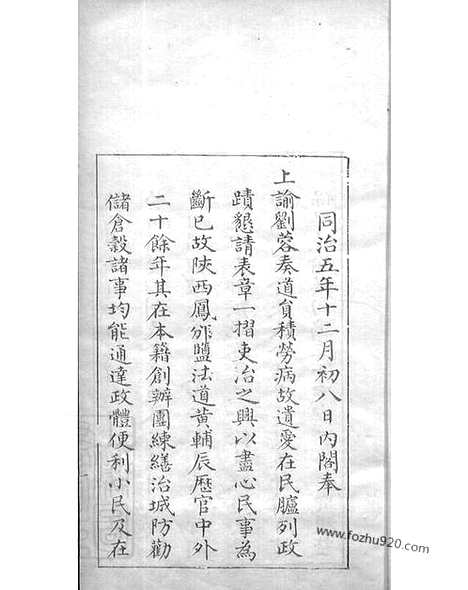 同治五年十二月初八日內閣奉
上諭劉蓉奏道員積勞病故遺愛在民臚列政
蹟懇請表章一摺吏治之興以盡心民事為
斷已故陝西鳳邠鹽法道黃輔辰歷官中外
二十餘年其在本籍創辦團練繕治城防勸
儲倉穀諸事均能通達政體便利小民及在
www.fozhu920.com